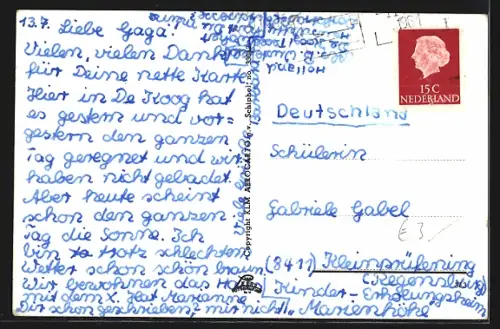 13.7. Liebe Gaga!
Vielen, vielen Dank
für Deine nette Karte
Hier in De Koog hat
es gestern und vor=
gestern den ganzen
Tag geregnet und wir
haben nicht gebadet.
Aber heute scheint
schon den ganzen
Tag die Sonne. Ich
bin ja trotz schlechten
Wetter schon schön braun.
Wir bewohnen das
mit dem X. Hat Marianne
Dir schon geschrieben? mir nicht!
Viele
Holland
Copyright KLM AEROCARTO n.v., Schiphol no.
15 C
NEDERLAND
Deutschland
Schülerin
Gabriele Gabel
€ 3,-
(8411) Kleinprüfening
(Regensburg)
Kinder-Erholungsheim
"Marienhöhe